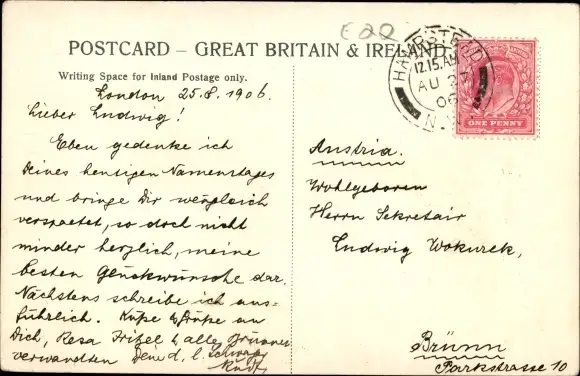 E20
POSTCARD – GREAT BRITAIN & IRELAND
HAMPSTEAD
12.15.AM
AU 27
06
N.W.
ONE PENNY
Writing Space for Inland Postage only.
London 25.8.1906.
Lieber Ludwig!
Eben gedenke ich
Deines heutigen Namenstages
und bringe Dir wengleich
verspaetet, so doch nicht
minder herzlich, meine
besten Glückwünsche dar.
Nächstens schreibe ich aus-
führlich. Küße & Grüße an
Dich, Resa Fritzel & alle Brünner
verwandten Dein d. l.
Austria.
Wohlgeboren
Herrn Sekretair
Ludwig Wokurek,
Brünn
Parkstrasse 10